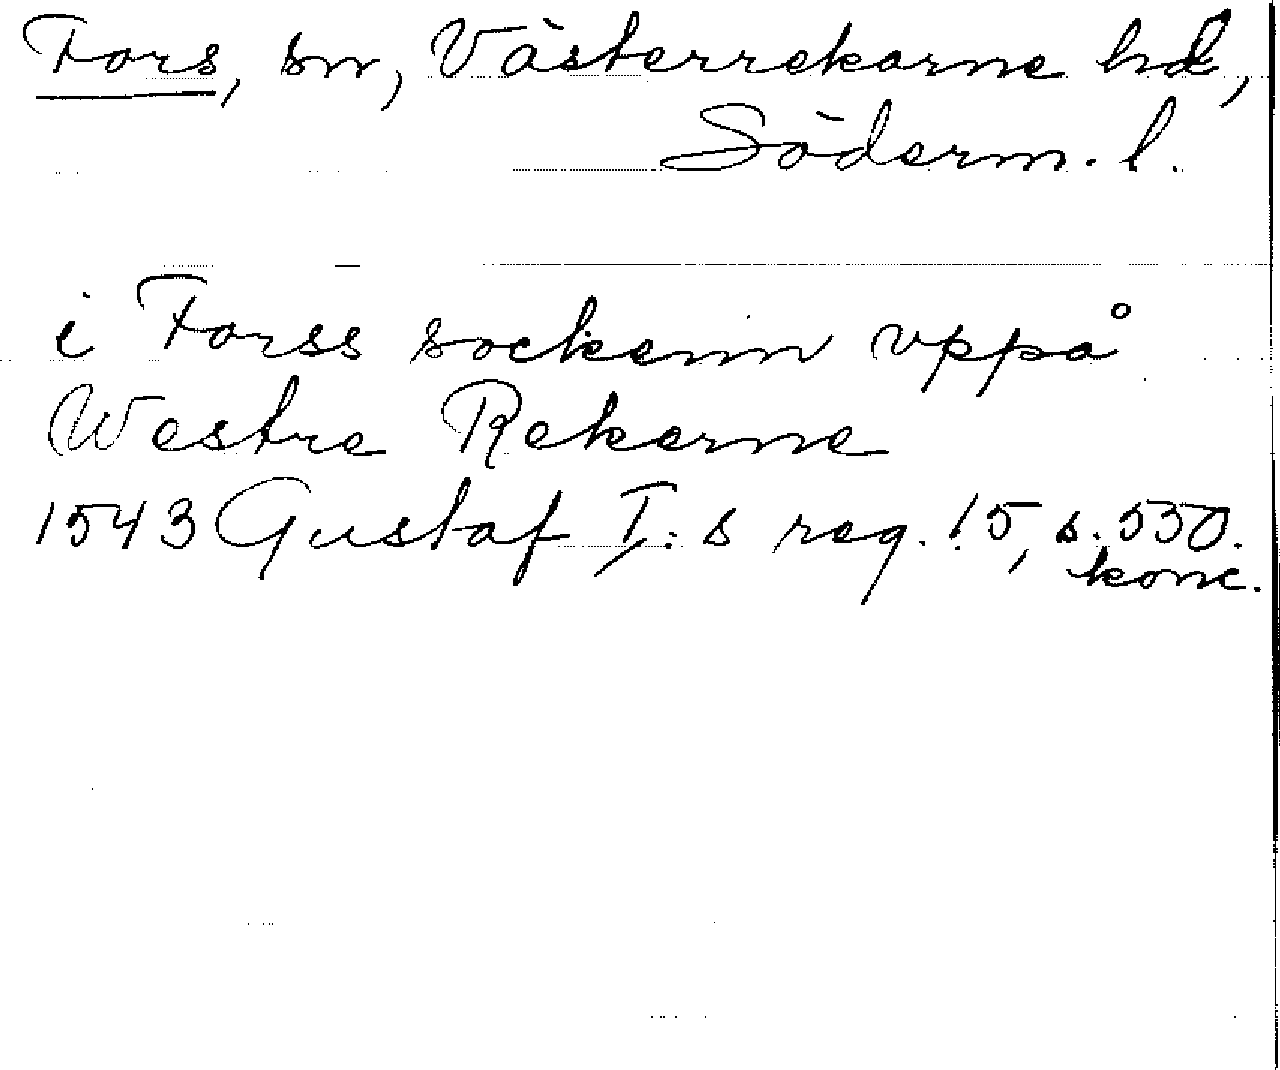 Fors, sn, Västerrekarne hd,
Söderm. l.
i Forss sockenn vppå
Westre Rekerne
1543 Gustaf I:s reg. 15, s. 550.
konc.